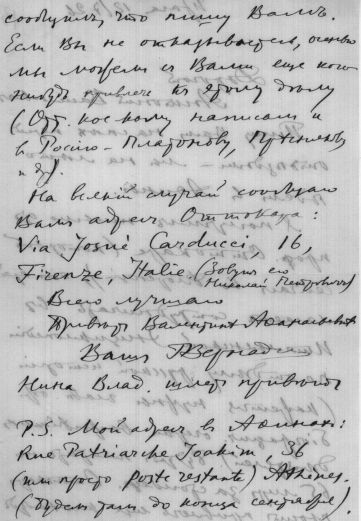 сообщить, что пишу Вамъ.
Если Вы не откажетесь, осенью
мы можемъ съ Вами еще кого
нибудь привлечь къ этому дѣлу
(Отт. кое кому написали и
въ Россію - Платонову,
и др.).
На всякій случай сообщаю
Вамъ адресъ Оттокара:
Via Josuè Carducci, 16,
Firenze, Italie. (Зовутъ его
Николай Петровичъ)
Всего лучшаго
Привѣтъ Валентинѣ Афанасьевнѣ
Вашъ ГВернадскій
Нина Влад. шлетъ привѣтъ
P.S. Мой адресъ въ Афинахъ:
Rue Patriarche Joakim, 36
(или просто poste restante) Athènes.
(будемъ тамъ до конца сентября).